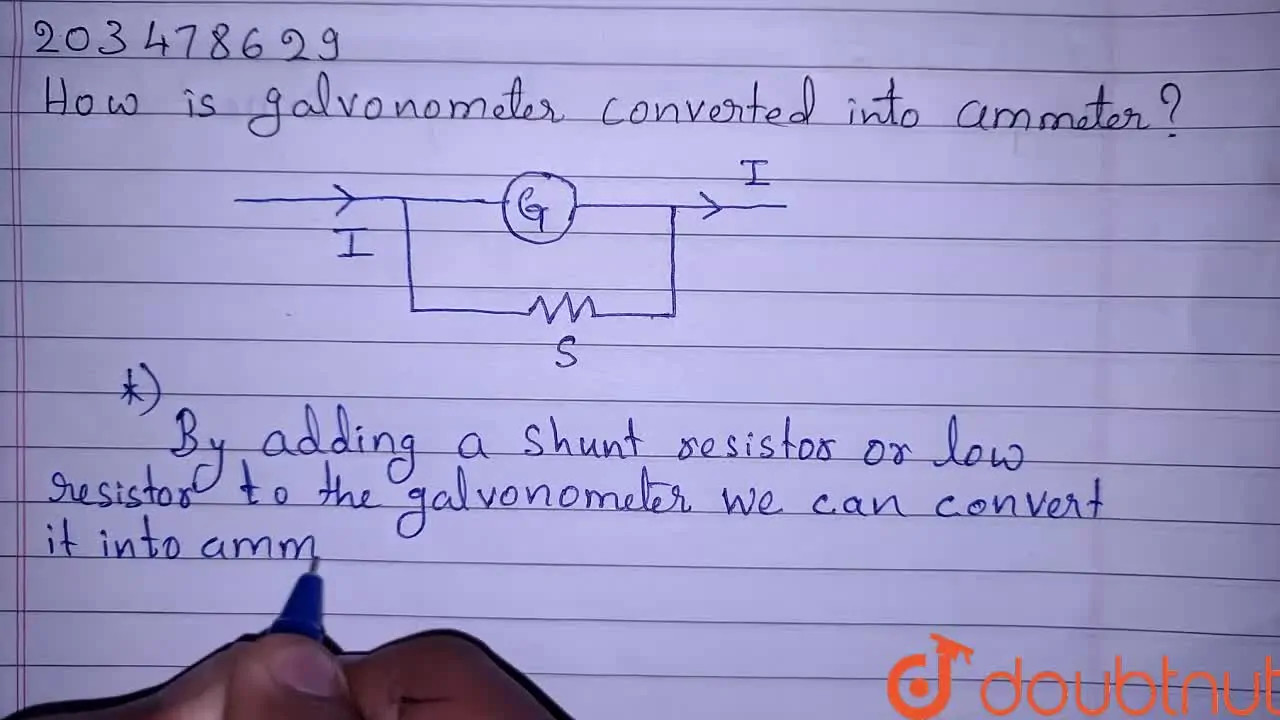 203478629
How is galvonometer converted into ammeter?
I
G
I
S
*)
By adding a shunt resistor or low
resistor to the galvonometer we can convert
it into amm
doubtnut